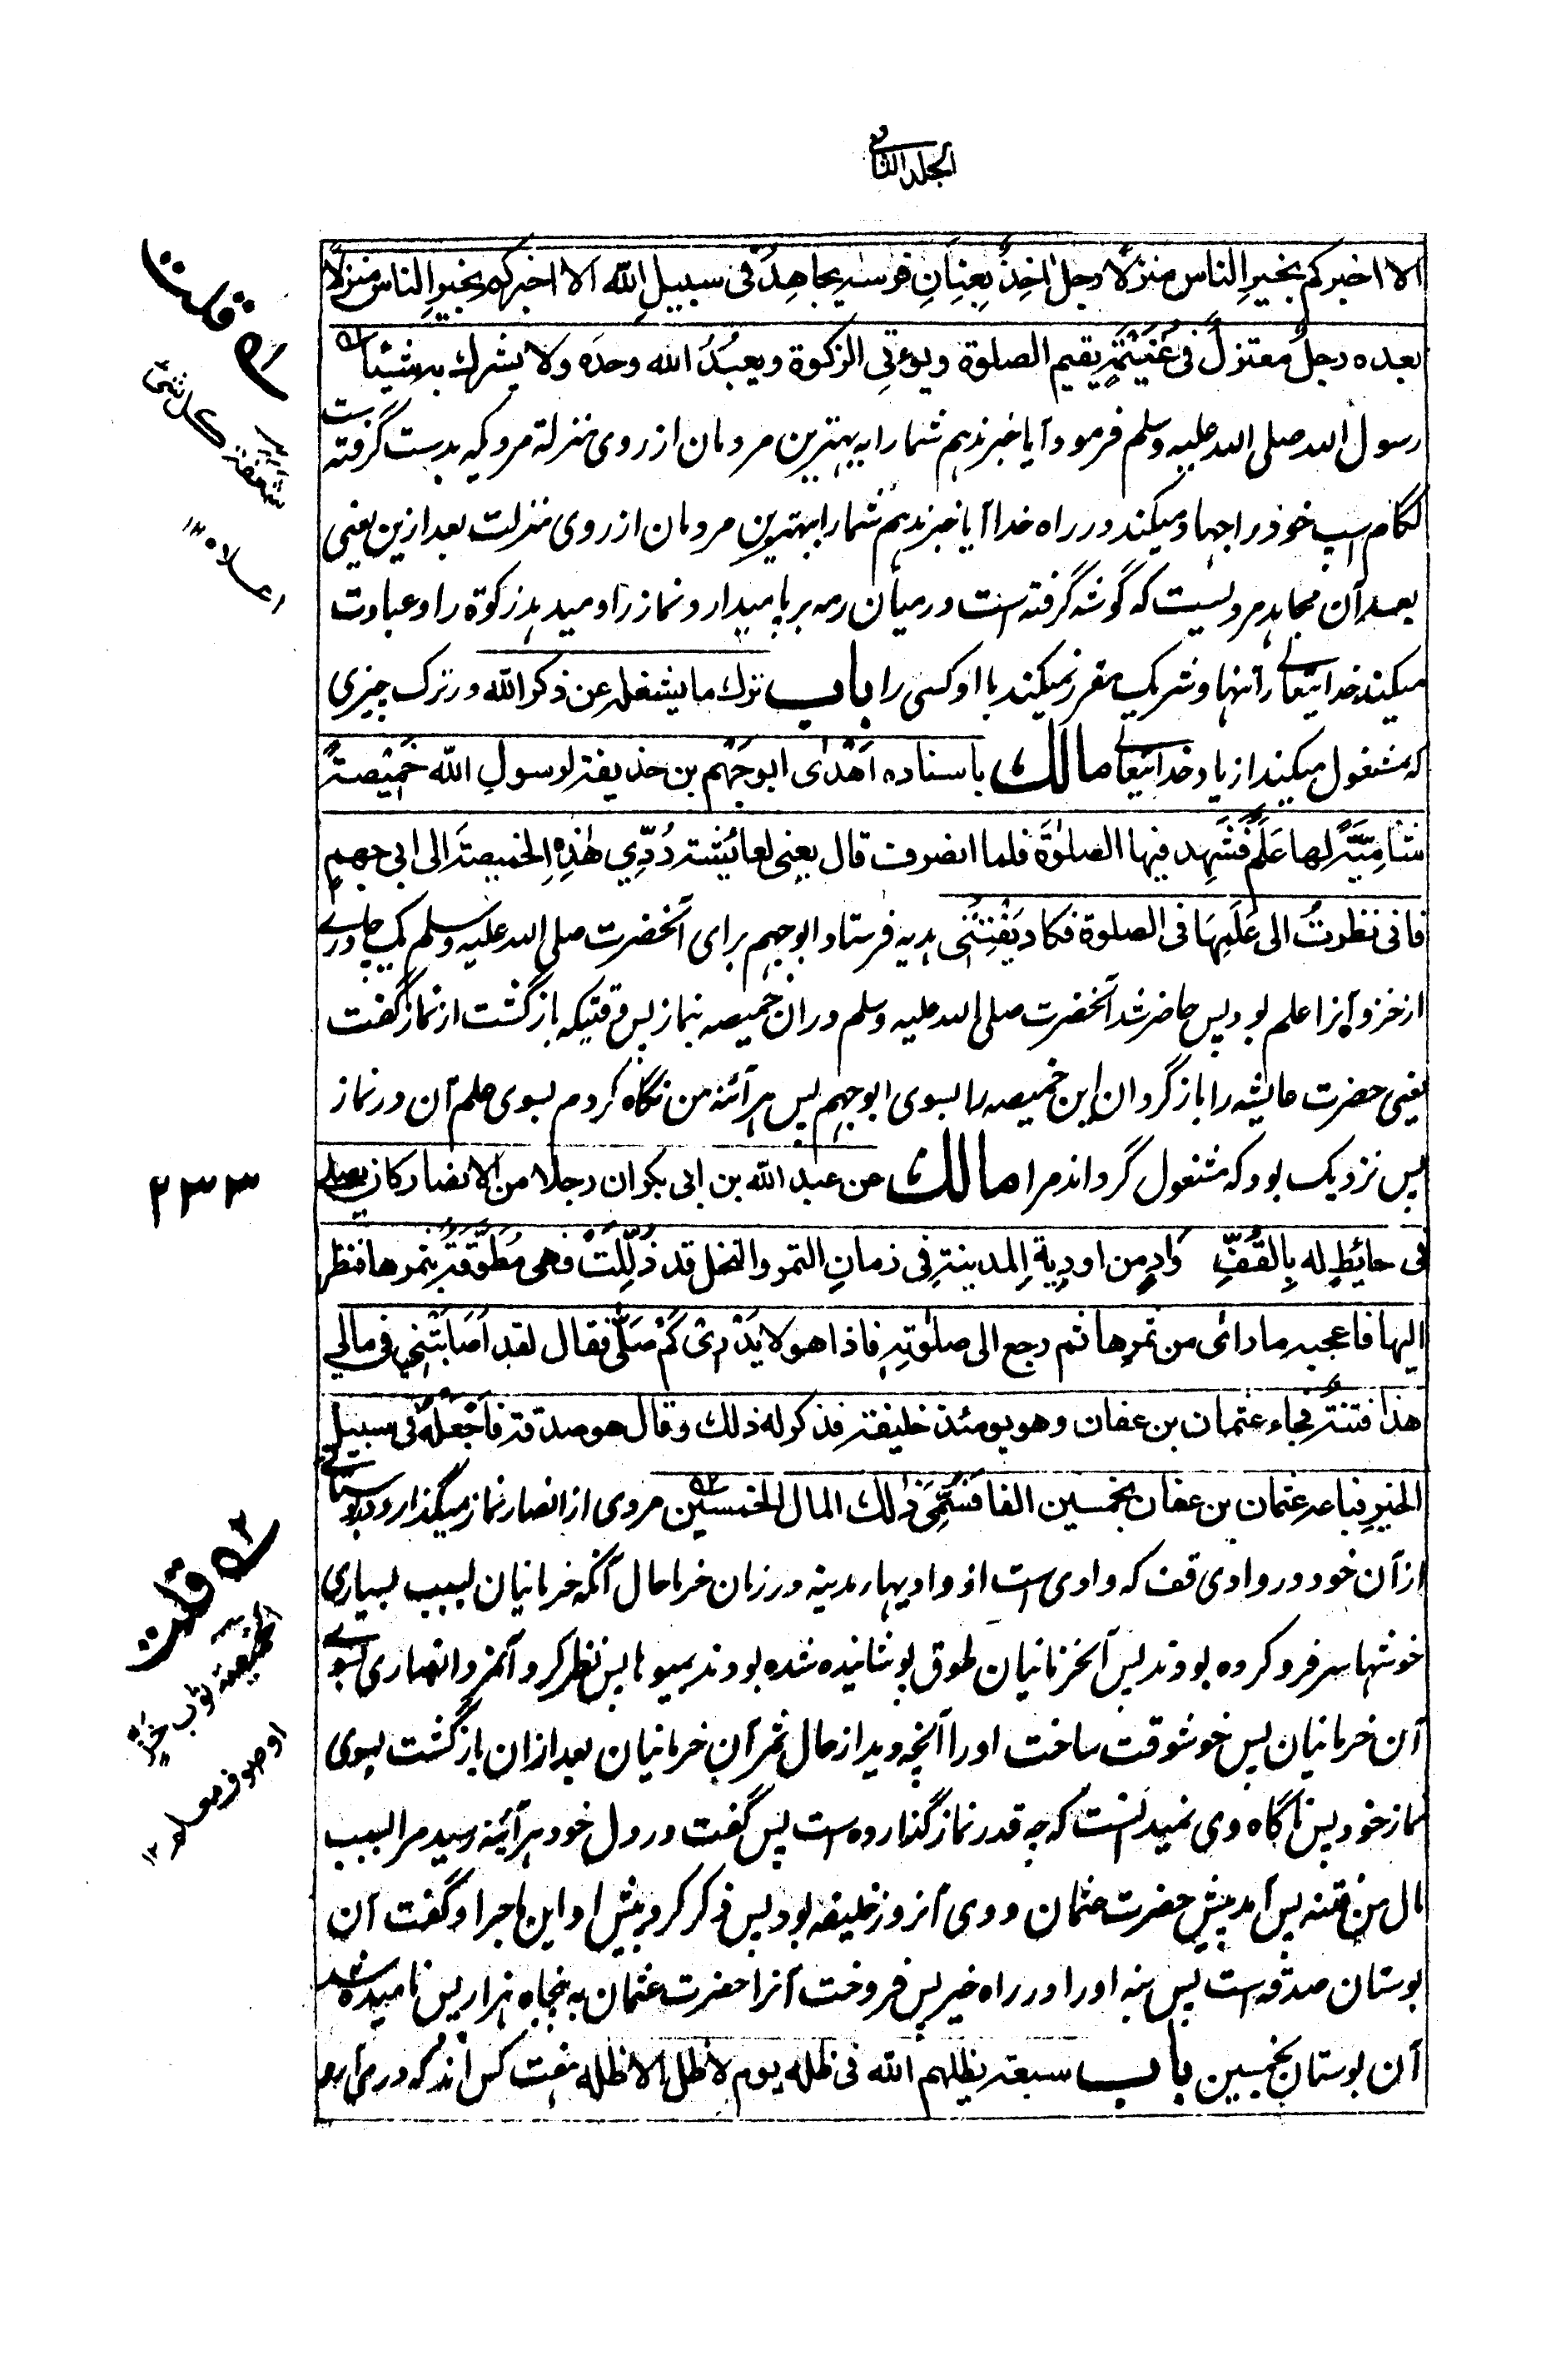 الجلد الثانی
الا اخبرکم بخیرِ الناس منزلًا رجلٌ اٰخِذٌ بِعِنِانِ فرسه یجاهِدُ فی سبیلِ اللّٰه الا اخبرکم بخیرِ الناس منزلًا
بعده رجلٌ معتزلٌ فی غُنَیْمَةٍ یقیم الصلوة ویوءتی الزکوة ویعبُدُ الله وحدَه ولا یشرك به شیئا
رسول الله صلی الله علیه وسلم فرمود آیا خبر ندهم شمارا به بهترین مردمان از روی منزلة مردیکه بدست گرفته ست
لگام اسپ خود را جهاد میکند در راه خدا آیا خبر ندهم شمارا ببهترین مردمان از روی منزلت بعد ازین یعنی
بعد آن مجاهد مردیست که گوشه گرفته است در میان رمه بر پا میدارد نماز را و میدهد زکوة را و عبادت
میکند خدایتعالے را تنها و شریک مقرر نمیکند با او کسی را باب ترك ما یشغله عن ذکر الله در ترک چیزی
که مشغول میکند از یاد خدایتعالے مالك باسناده اَهْدٰی ابو جَهْم بن حذیفة لرسولِ الله خَمِیْصةً
شامِیَّةً لها عَلَمٌ فَشَهِد فیها الصلوٰةَ فلما انصرف قال یعنی لعائیشة رُدِّیْ هٰذِهِ الخمیصةَ الی ابی جهمٍ
فانی نظرتُ الی عَلَمِهَا فی الصلوة فکاد یَفْتِنُنِی هدیه فرستاد ابوجهم برای آنحضرت صلی الله علیه وسلم یک چادرے
از خز و آنرا علم بود پس حاضر شد آنحضرت صلی الله علیه وسلم در ان خمیصه بنماز پس وقتیکه بازگشت از نماز گفت
یعنی حضرت عایشه را باز گردان این خمیصه را بسوی ابوجهم پس هر آئنه من نگاه کردم بسوی علم آن در نماز
پس نزدیک بود که مشغول گرداند مرا مالك عن عبد الله بن ابی بکر ان رجلا من الانصار کان یصلی
فی حائِطٍ له بِالقُفِّ وَادٍ من اودِیةِ المدینةِ فی زمانِ التمر والنخل قد ذُلِّلَتْ فهی مُطَوَّقَةٌ بثمرها فنظر
الیها فاعجبه ما رائی من ثمرها ثم رجع الی صلٰوتِهٖ فاذا هو لا یَدْرِیْ کَمْ صَلّٰی فقال لقد اَصَابَتْنِیْ فی مالی
هذا فتنةٌ فجاء عثمان بن عفان وهو یومئذ خلیفة فذکر له ذلك وقال هو صدقة فاجْعَلْهُ فی سبیل
الخیرِ فباعه عثمان بن عفان بخمسین الفا فَسُمِّیَ ذٰلك المال الخمسین مردی از انصار نماز میگذارد در بوستانے
از آن خود در وادی قف که وادی ست از وادیهار مدینه در زمان خرما حال آنکه خرمانیان بسبب بسیاری
خوشها سر فرو کرده بودند پس آنخرمانیان طوق پوشانیده شده بودند بمیوها پس نظر کرد آنمرد انصاری بسوے
آن خرمانیان پس خوشوقت ساخت او را آنچه دید از حال ثمر آن خرمانیان بعد ازان بازگشت بسوی
نماز خود پس ناگاه وی نمیدانست که چه قدر نماز گذارده است پس گفت در دل خود هر آئینه رسید مرا بسبب
مال من فتنه پس آمد پیش حضرت عثمان و وی آنروز خلیفه بود پس ذکر کرد پیش او این ماجرا و گفت آن
بوستان صدقه است پس بنه او را در راه خیر پس فروخت آنرا حضرت عثمان به پنجاه هزار پس نامیده شد
آن بوستان بخمسین باب سبعة یظلهم الله فی ظله یوم لا ظل الا ظله هفت کس اند که در می آرد
قلت
کل شئ
اعلاه ۱۲
۲۳۳
قلت
الخمیصة ثوب خز
او صوف معلم ۱۲